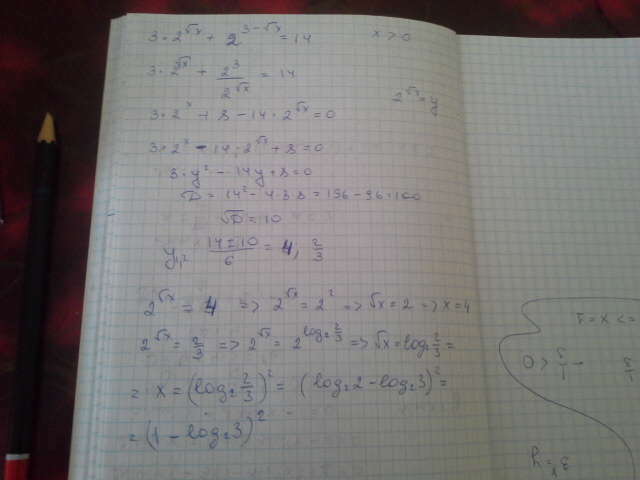 3·2^√x + 2^(3-√x) = 14    x > 0
3·2^√x + 2³/2^√x = 14
2^√x = y
3·2^x + 8 - 14·2^√x = 0
3·2^x - 14·2^√x + 8 = 0
3·y² - 14y + 8 = 0
D = 14² - 4·3·8 = 196 - 96 = 100
√D = 10
y₁,₂ (14±10)/6 = 4, 2/3
2^√x = 4 => 2^√x = 2² => √x = 2 => x = 4
2^√x = 2/3 => 2^√x = 2^(log₂ 2/3) => √x = log₂ 2/3 =
= x = (log₂ 2/3)² = (log₂2 - log₂3)² =
= (1 - log₂3)²